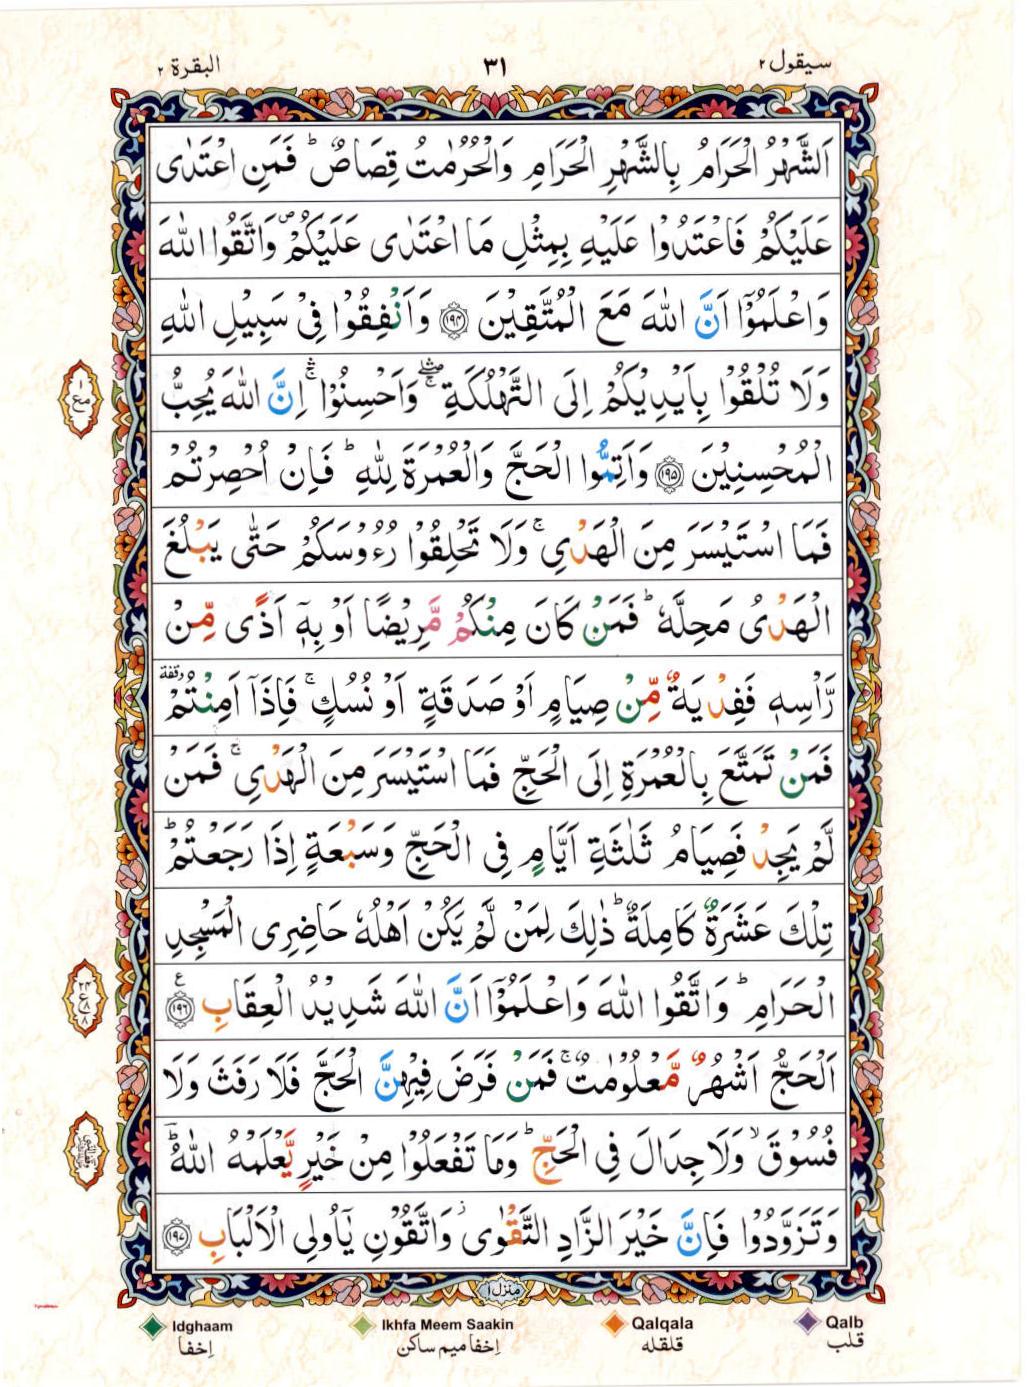 سيقول ٢ ٣١ البقرة ٢
اَلشَّهْرُ الْحَرَامُ بِالشَّهْرِ الْحَرَامِ وَالْحُرُمٰتُ قِصَاصٌ ؕ فَمَنِ اعْتَدٰى
عَلَيْكُمْ فَاعْتَدُوْا عَلَيْهِ بِمِثْلِ مَا اعْتَدٰى عَلَيْكُمْ ۪ وَاتَّقُوا اللّٰهَ
وَاعْلَمُوْۤا اَنَّ اللّٰهَ مَعَ الْمُتَّقِيْنَ ﴿۱۹۴﴾ وَاَنْفِقُوْا فِيْ سَبِيْلِ اللّٰهِ
وَلَا تُلْقُوْا بِاَيْدِيْكُمْ اِلَى التَّهْلُكَةِ ۛۖۚ وَاَحْسِنُوْا ۛۚ اِنَّ اللّٰهَ يُحِبُّ
الْمُحْسِنِيْنَ ﴿۱۹۵﴾ وَاَتِمُّوا الْحَجَّ وَالْعُمْرَةَ لِلّٰهِ ؕ فَاِنْ اُحْصِرْتُمْ
فَمَا اسْتَيْسَرَ مِنَ الْهَدْيِ ۚ وَلَا تَحْلِقُوْا رُءُوْسَكُمْ حَتّٰى يَبْلُغَ
الْهَدْيُ مَحِلَّهٗ ؕ فَمَنْ كَانَ مِنْكُمْ مَّرِيْضًا اَوْ بِهٖۤ اَذًى مِّنْ
رَّاْسِهٖ فَفِدْيَةٌ مِّنْ صِيَامٍ اَوْ صَدَقَةٍ اَوْ نُسُكٍ ۚ فَاِذَاۤ اَمِنْتُمْ وقفة
فَمَنْ تَمَتَّعَ بِالْعُمْرَةِ اِلَى الْحَجِّ فَمَا اسْتَيْسَرَ مِنَ الْهَدْيِ ۚ فَمَنْ
لَّمْ يَجِدْ فَصِيَامُ ثَلٰثَةِ اَيَّامٍ فِى الْحَجِّ وَسَبْعَةٍ اِذَا رَجَعْتُمْ ؕ
تِلْكَ عَشَرَةٌ كَامِلَةٌ ؕ ذٰلِكَ لِمَنْ لَّمْ يَكُنْ اَهْلُهٗ حَاضِرِى الْمَسْجِدِ
الْحَرَامِ ؕ وَاتَّقُوا اللّٰهَ وَاعْلَمُوْۤا اَنَّ اللّٰهَ شَدِيْدُ الْعِقَابِ ﴿۱۹۶﴾ ع
اَلْحَجُّ اَشْهُرٌ مَّعْلُوْمٰتٌ ۚ فَمَنْ فَرَضَ فِيْهِنَّ الْحَجَّ فَلَا رَفَثَ وَلَا
فُسُوْقَ ۙ وَلَا جِدَالَ فِى الْحَجِّ ؕ وَمَا تَفْعَلُوْا مِنْ خَيْرٍ يَّعْلَمْهُ اللّٰهُ ؕ
وَتَزَوَّدُوْا فَاِنَّ خَيْرَ الزَّادِ التَّقْوٰى ۫ وَاتَّقُوْنِ يٰۤاُولِى الْاَلْبَابِ ﴿۱۹۷﴾
منزل ١
Idghaam Ikhfa Meem Saakin Qalqala Qalb
اِخفا اِخفا ميم ساكن قلقله قلب